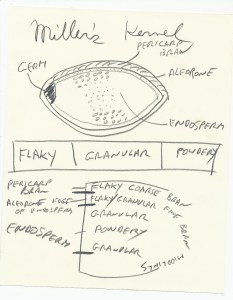 Miller's Kernel
PERICARP
BRAN
GERM
ALEURONE
ENDOSPERM
FLAKY GRANULAR POWDERY
PERICARP
BRAN
ALEURONE EDGE
OF ENDOSPERM
ENDOSPERM
FLAKY COARSE BRAN
FLAKY/GRANULAR FINE BRAN
GRANULAR
POWDERY
GRANULAR
MIDDLINGS